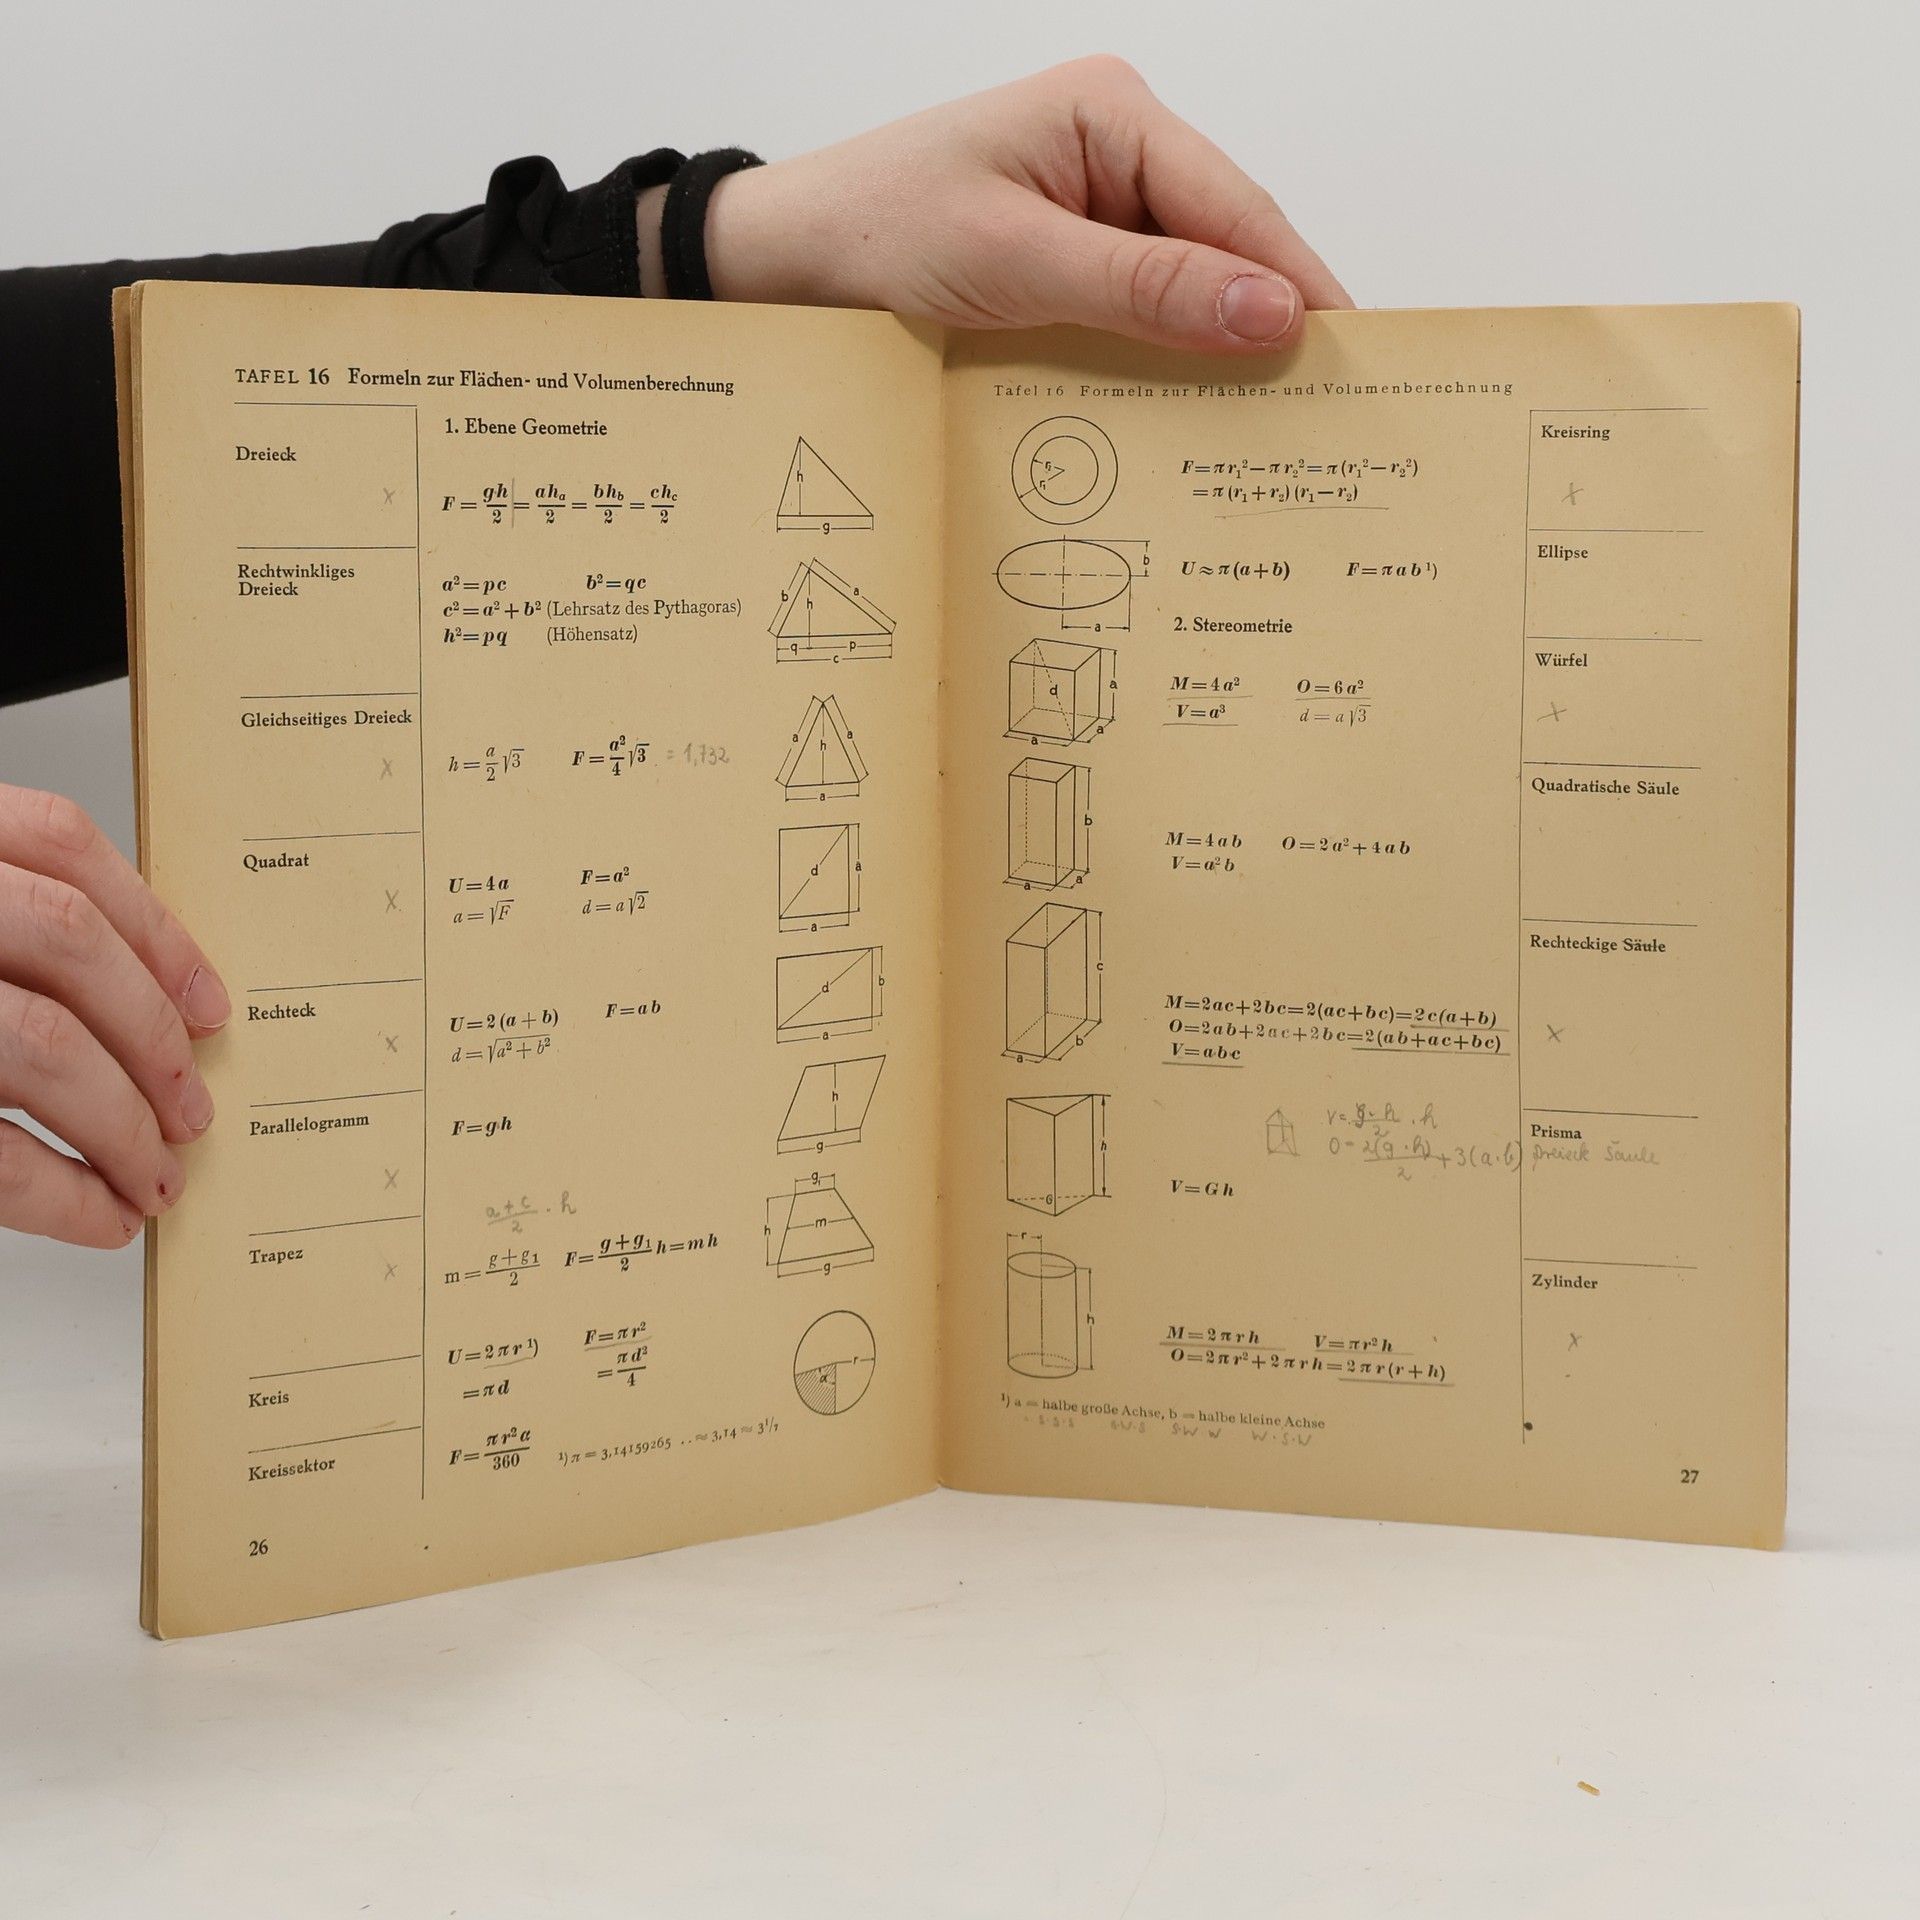 TAFEL 16 Formeln zur Flächen- und Volumenberechnung
1. Ebene Geometrie
Dreieck
F = gh/2 = ahₐ/2 = bh_b/2 = ch_c/2
h
g
Rechtwinkliges
Dreieck
a²=pc b²=qc
c²=a²+b² (Lehrsatz des Pythagoras)
h²=pq (Höhensatz)
b h a
q p
c
Gleichseitiges Dreieck
h = a/2 √3 F = a²/4 √3 = 1,732
a h a
a
Quadrat
U=4a F=a²
a=√F d=a√2
d a
a
Rechteck
U=2(a+b) F=ab
d=√a²+b²
d b
a
Parallelogramm
F=gh
h
g
a+c/2 · h
Trapez
m = g+g₁/2 F = g+g₁/2 h=mh
g₁
h m
g
Kreis
U=2πr¹) F=πr²
=πd = πd²/4
r
α
Kreissektor
F = πr²α/360 ¹) π = 3,14159265 .. ≈ 3,14 ≈ 3¹/₇
26
Tafel 16 Formeln zur Flächen- und Volumenberechnung
Kreisring
r₂
r₁
F=πr₁²−πr₂²=π(r₁²−r₂²)
=π(r₁+r₂)(r₁−r₂)
Ellipse
b
a
U≈π(a+b) F=πab¹)
2. Stereometrie
Würfel
d a
a a
M=4a² O=6a²
V=a³ d=a√3
Quadratische Säule
b
a a
M=4ab O=2a²+4ab
V=a²b
Rechteckige Säule
c
a b
M=2ac+2bc=2(ac+bc)=2c(a+b)
O=2ab+2ac+2bc=2(ab+ac+bc)
V=abc
Prisma
V= g·h/2 · h
O= 2(g·h)/2 +3(a·b) Dreieck Säule
h
G
V=Gh
Zylinder
r
h
M=2πrh V=πr²h
O=2πr²+2πrh=2πr(r+h)
¹) a = halbe große Achse, b = halbe kleine Achse
S·S·S S·W·S S·W W W·S·W
27